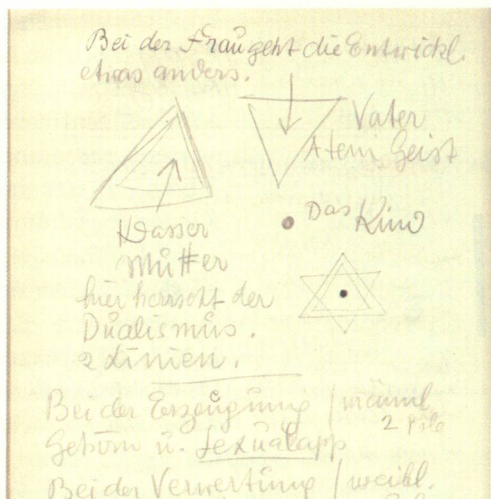 Bei der Frau geht die Entwickl.
etwas anders.
Vater
Atem Geist
Das Kind
Wasser
Mutter
hier herrscht der
Dualismus.
2 Linien.
Bei der Erzeugung / männl.
2 Pole
Gehirn u. Sexualapp
Bei der Verwertung / weibl.